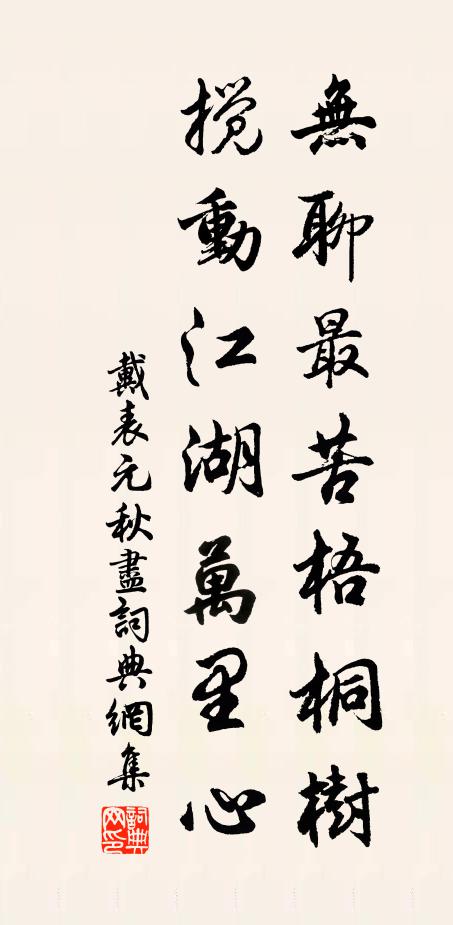 無聊最苦梧桐樹
攪動江湖萬里心
戴表元秋盡詞典網集
詞典網印